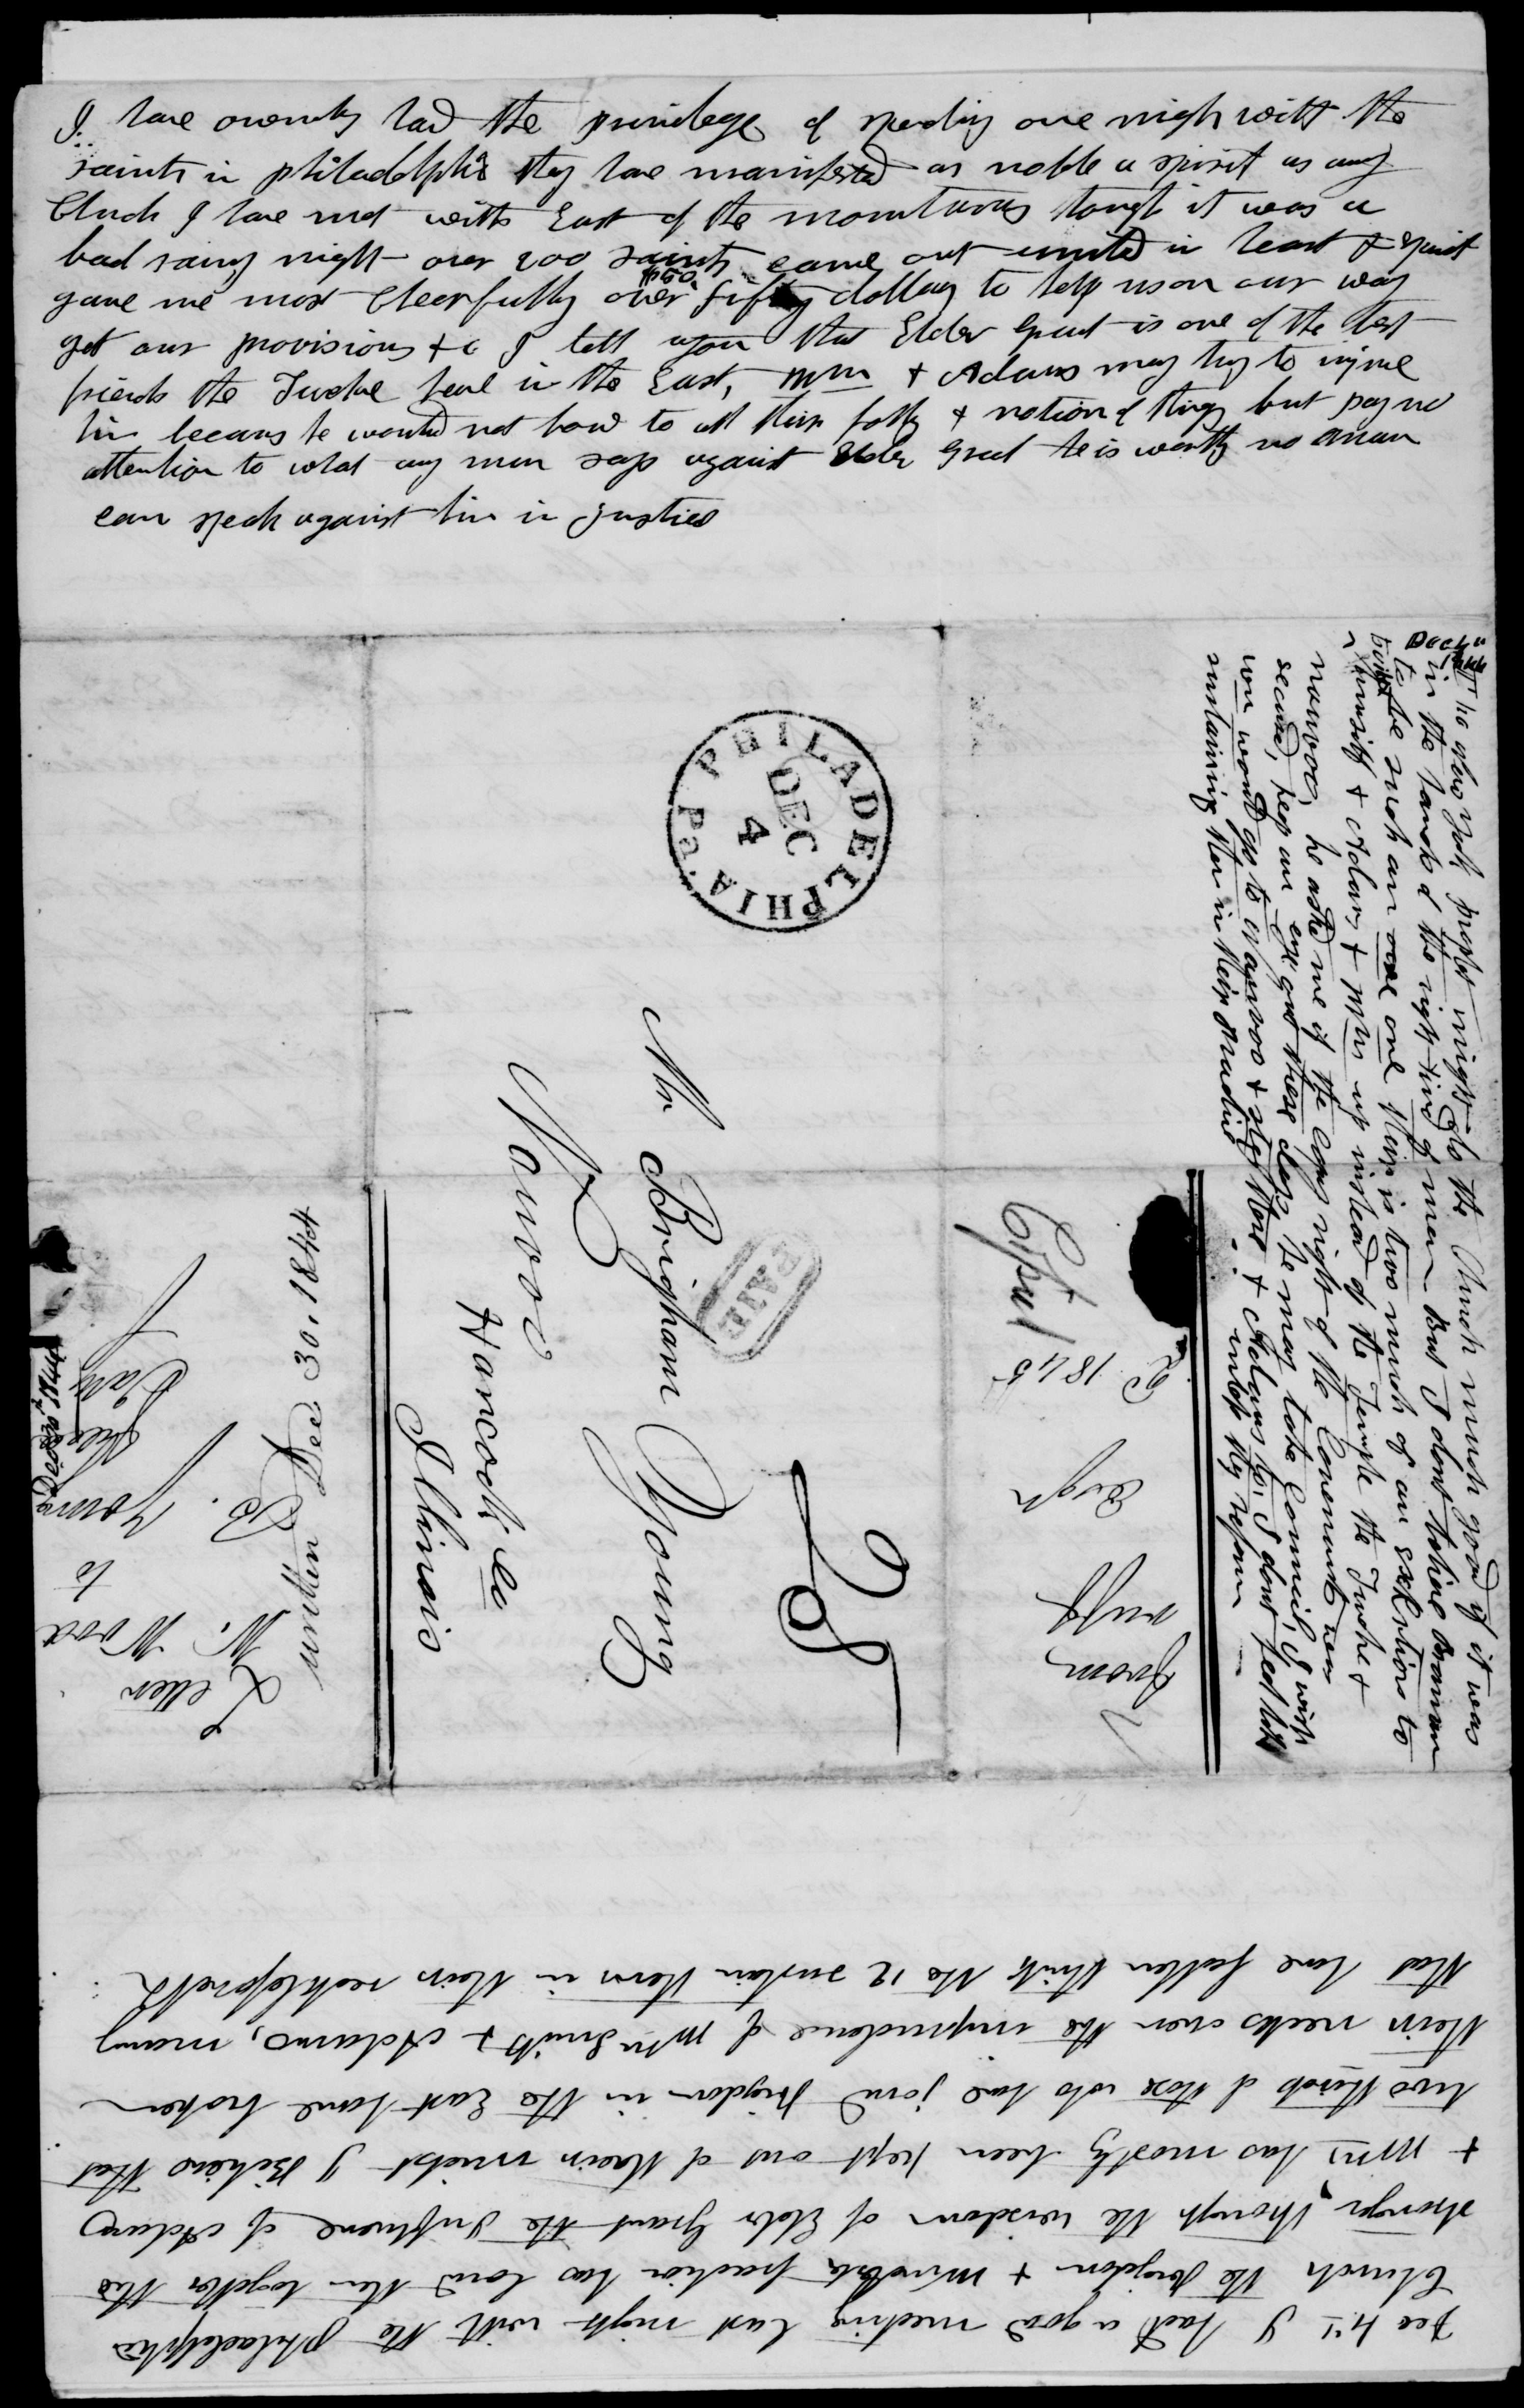 I have owenly had the privilege of spending one nigh with the
saints in philadelphia they have manifested as noble a spirit as any
Church I have met with East of the mountains though it was a
bad rainy night over 200 saints came out united in heart & spirit
gave me most cheerfully over $50. fifty dollars to help us on our way
get our provisions &c I tell you that Elder Grant is one of the best
friends the Twelve have in the East, Wm & Adams may try to injure
him becaus he would not bow to all their folly & notion of things but pay no
attention to what any man says against Elder Grant he is worthy no man
can speak against him in justice
PHILADELPHIA Pa.
DEC
4
PAID
25
Mr Brigham Young
Nauvoo
Hancock co
Illinois
The New York prophet might do the Church much good if it was
in the hands of the right kind of men But I dont believe Brannan
to be such an one their is two much of an exertion to
himself & Adams & Wm up instead of the Temple the Twelve &
nauvoo, he asked me if the copy right of the Covenants was
secured, keep an eye out these days he may take Council, I wish
Wm would go to Nauvoo & stop there & Adams to, I dont feel like
sustaining them in their proceedings untill they reform
Letter
W. Wood
to
B. Young
written Dec 30. 1844
from
ruff
1845
Dec 4th I had a good meeting last night with the philadelphia
Church the Rigdon & faction has bound them together the
stronger, through the wisdom of Elder Grant the Influence of Adams
& Wm has mostly been kept out of their midst I Believe that
two thirds of those who have joind Rigdon in the East have broken
their necks over the imprudence of Wm Smith & Adams, many
that have fallen think the 12 sustain them in their recklessness